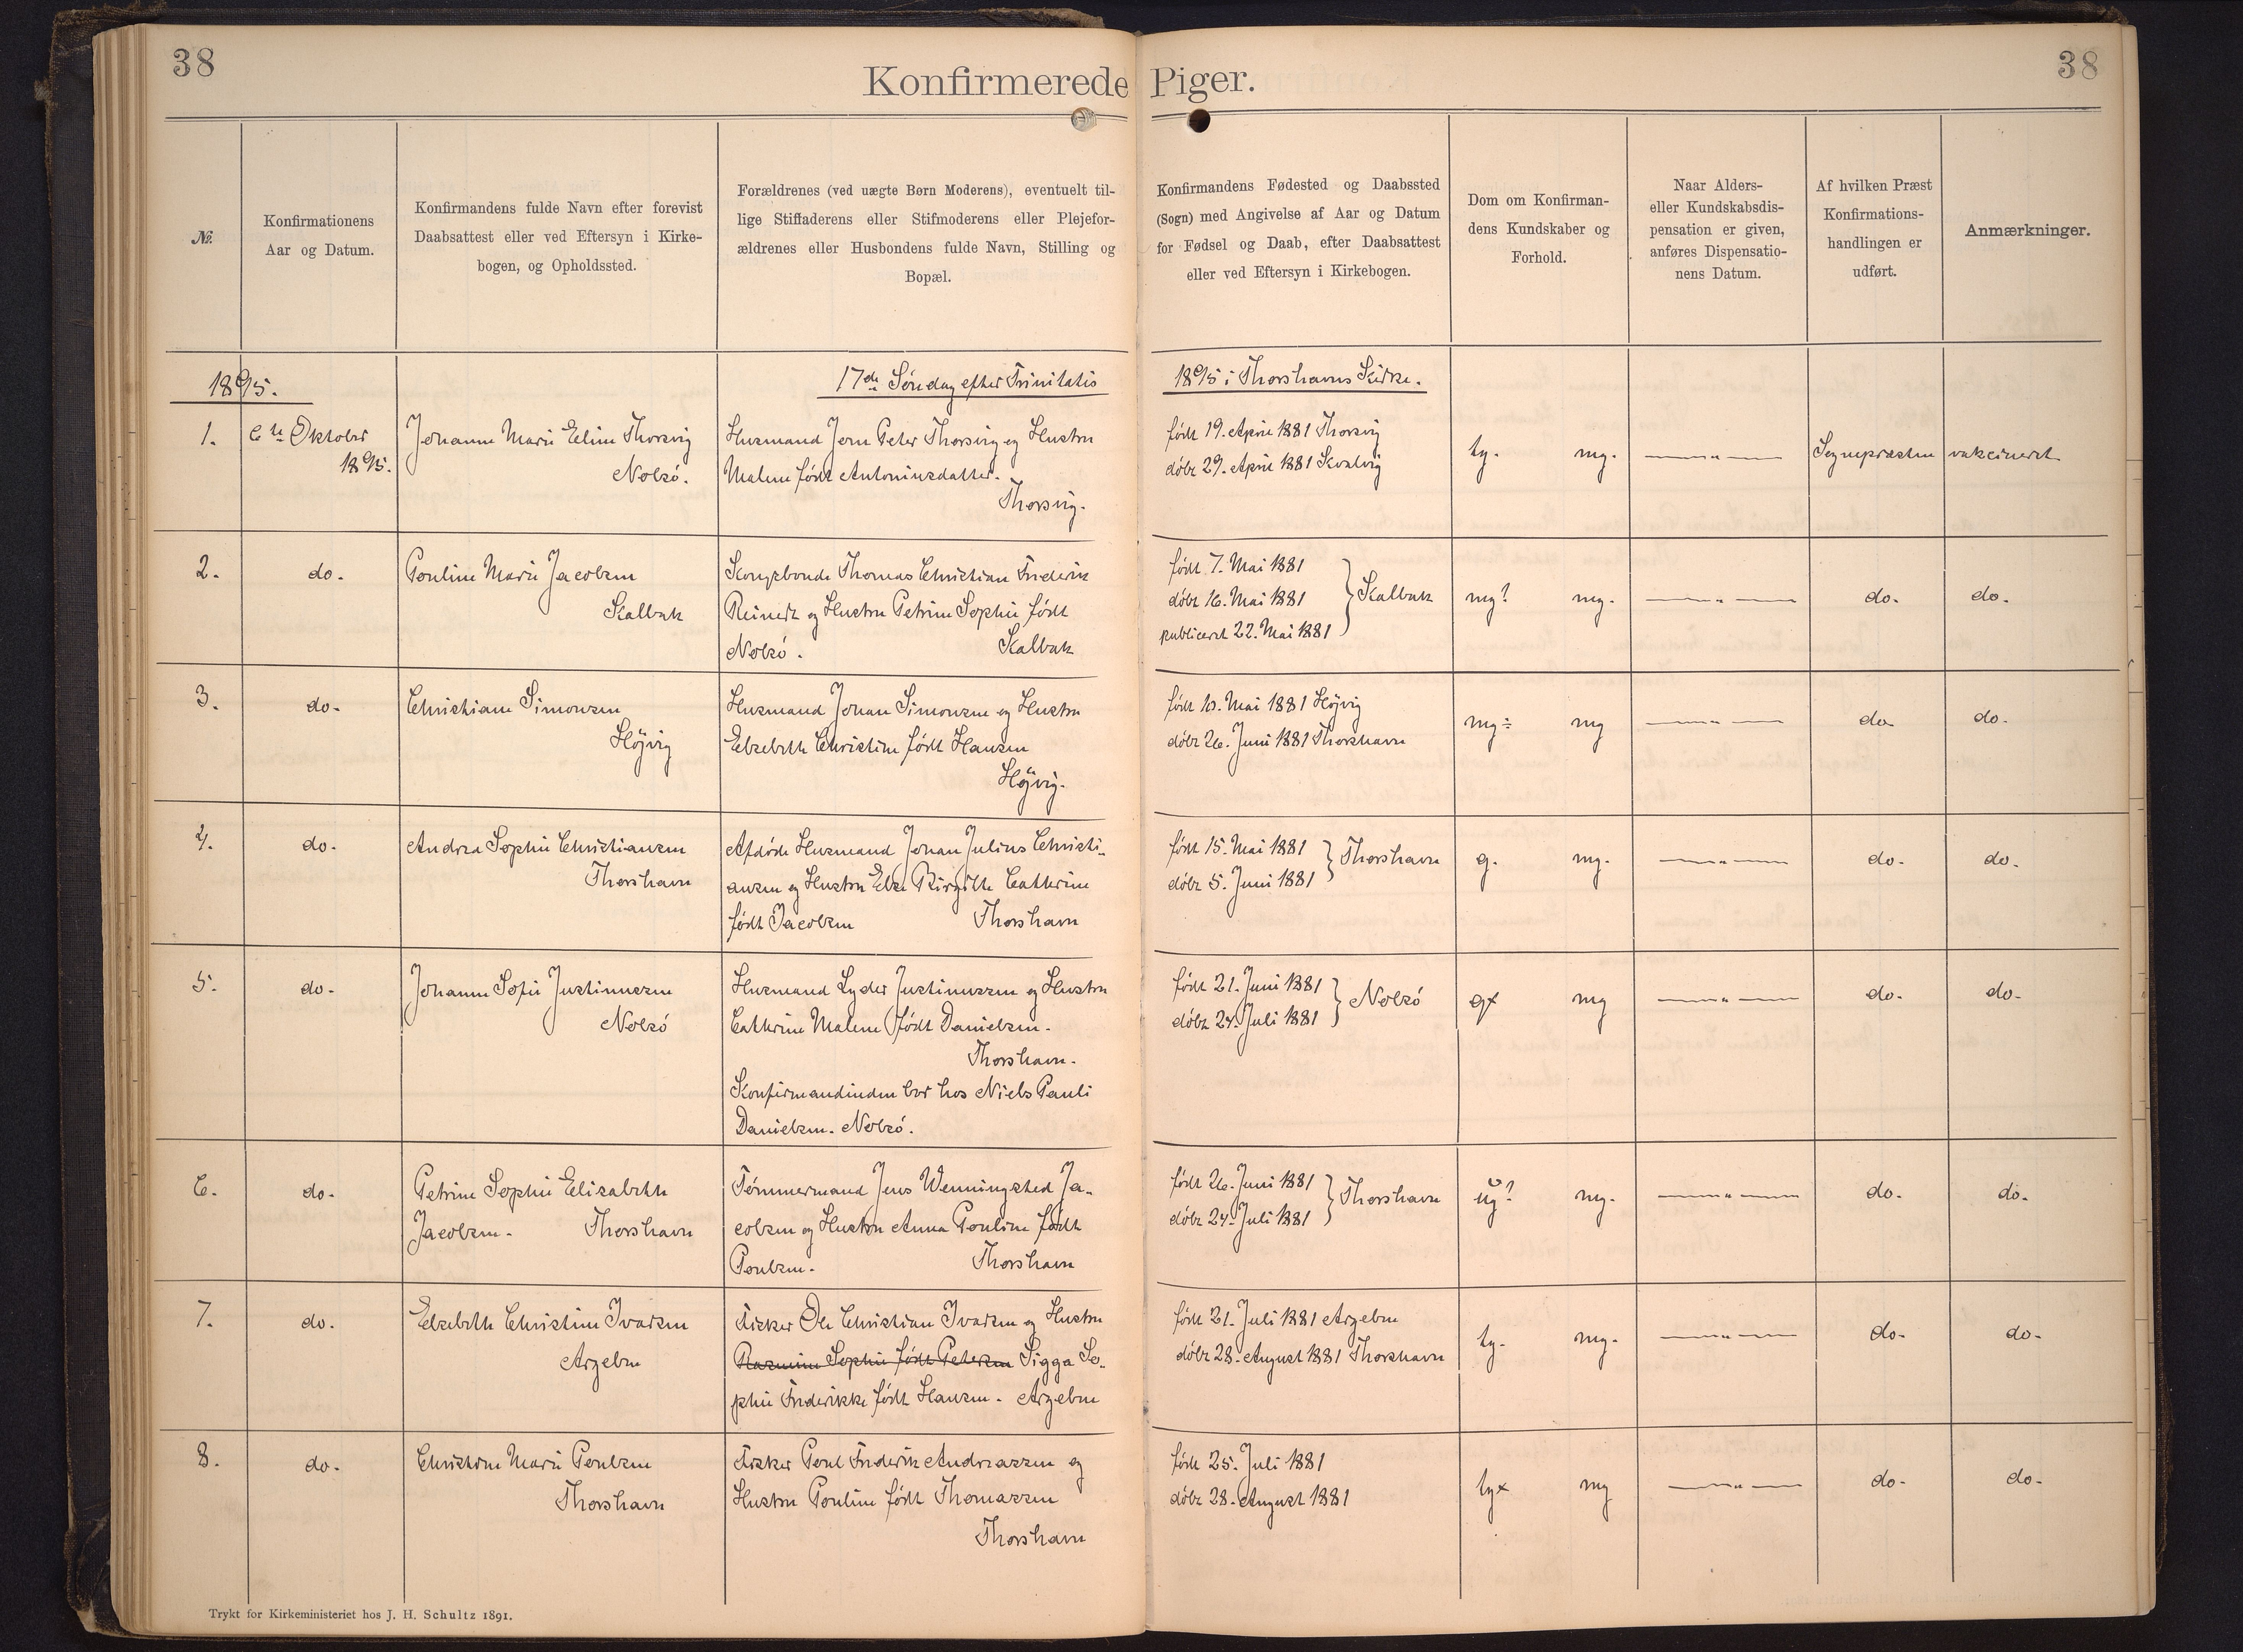 38
Konfirmerede Piger.
38
№.
Konfirmationens
Aar og Datum.
Konfirmandens fulde Navn efter forevist
Daabsattest eller ved Eftersyn i Kirke-
bogen, og Opholdssted.
Forældrenes (ved uægte Børn Moderens), eventuelt til-
lige Stiffaderens eller Stifmoderens eller Plejefor-
ældrenes eller Husbondens fulde Navn, Stilling og
Bopæl.
Konfirmandens Fødested og Daabssted
(Sogn) med Angivelse af Aar og Datum
for Fødsel og Daab, efter Daabsattest
eller ved Eftersyn i Kirkebogen.
Dom om Konfirman-
dens Kundskaber og
Forhold.
Naar Alders-
eller Kundskabsdis-
pensation er given,
anføres Dispensatio-
nens Datum.
Af hvilken Præst
Konfirmations-
handlingen er
udført.
Anmærkninger.
1895.
17de Søndag efter Trinitatis
1895 i Thorshavns Kirke.
1.
6te Oktober
1895.
Johanne Marie Eline Thorsvig
Nolsø.
Husmand Jern Peter Thorsvig og Hustru
Malene født Antoniusdatter.
Thorsvig.
født 19. April 1881 Thorsvig
døbt 29. April 1881 Kvalvig
tg. mg.
Sognepræsten
vakcineret
2.
do.
Pouline Marie Jacobsen
Kalbak
Kongsbonde Thomas Christian Frederik
Reinert og Hustru Petrine Sophie født
Nolsø. Kalbak
født 7. Mai 1881
døbt 16. Mai 1881
publiceret 22. Mai 1881
Kalbak
mg? mg.
do.
do.
3.
do.
Christiane Simonsen
Højvig
Husmand Johan Simonsen og Hustru
Elsebeth Christine født Hansen
Højvig.
født 10. Mai 1881 Højvig
døbt 26. Juni 1881 Thorshavn
mg÷ mg
do
do.
4.
do.
Andrea Sophie Christiansen
Thorshavn
Afdøde Husmand Johan Julius Christi-
ansen og Hustru Else Birgitte Cathrine
født Jacobsen Thorshavn
født 15. Mai 1881
døbt 5. Juni 1881
Thorshavn
g. mg.
do.
do.
5.
do.
Johanne Sofie Justinussen
Nolsø
Husmand Lyder Justinussen og Hustru
Cathrine Malene født Danielsen.
Thorshavn.
Konfirmandinden bor hos Niels Pauli
Danielsen. Nolsø.
født 21. Juni 1881
døbt 24. Juli 1881
Nolsø
g× mg
do.
do.
6.
do.
Petrine Sophie Elisabeth
Jacobsen. Thorshavn
Tømmermand Jens Wenningsted Ja-
cobsen og Hustru Anna Pouline født
Poulsen. Thorshavn
født 26. Juni 1881
døbt 24. Juli 1881
Thorshavn
ug? mg.
do.
do.
7.
do.
Elsebeth Christine Ivarsen
Argeben
Fisker Ole Christian Ivarsen og Hustru
Rasmine Sophie født Petersen Sigga So-
phie Frederikke født Hansen. Argeben
født 21. Juli 1881 Argeben
døbt 28. August 1881 Thorshavn
tg. mg.
do.
do.
8.
do.
Christine Marie Poulsen
Thorshavn
Fisker Poul Frederik Andreassen og
Hustru Pouline født Thomassen
Thorshavn
født 25. Juli 1881
døbt 28. August 1881
tg× mg
do.
do.
Trykt for Kirkeministeriet hos J. H. Schultz 1891.